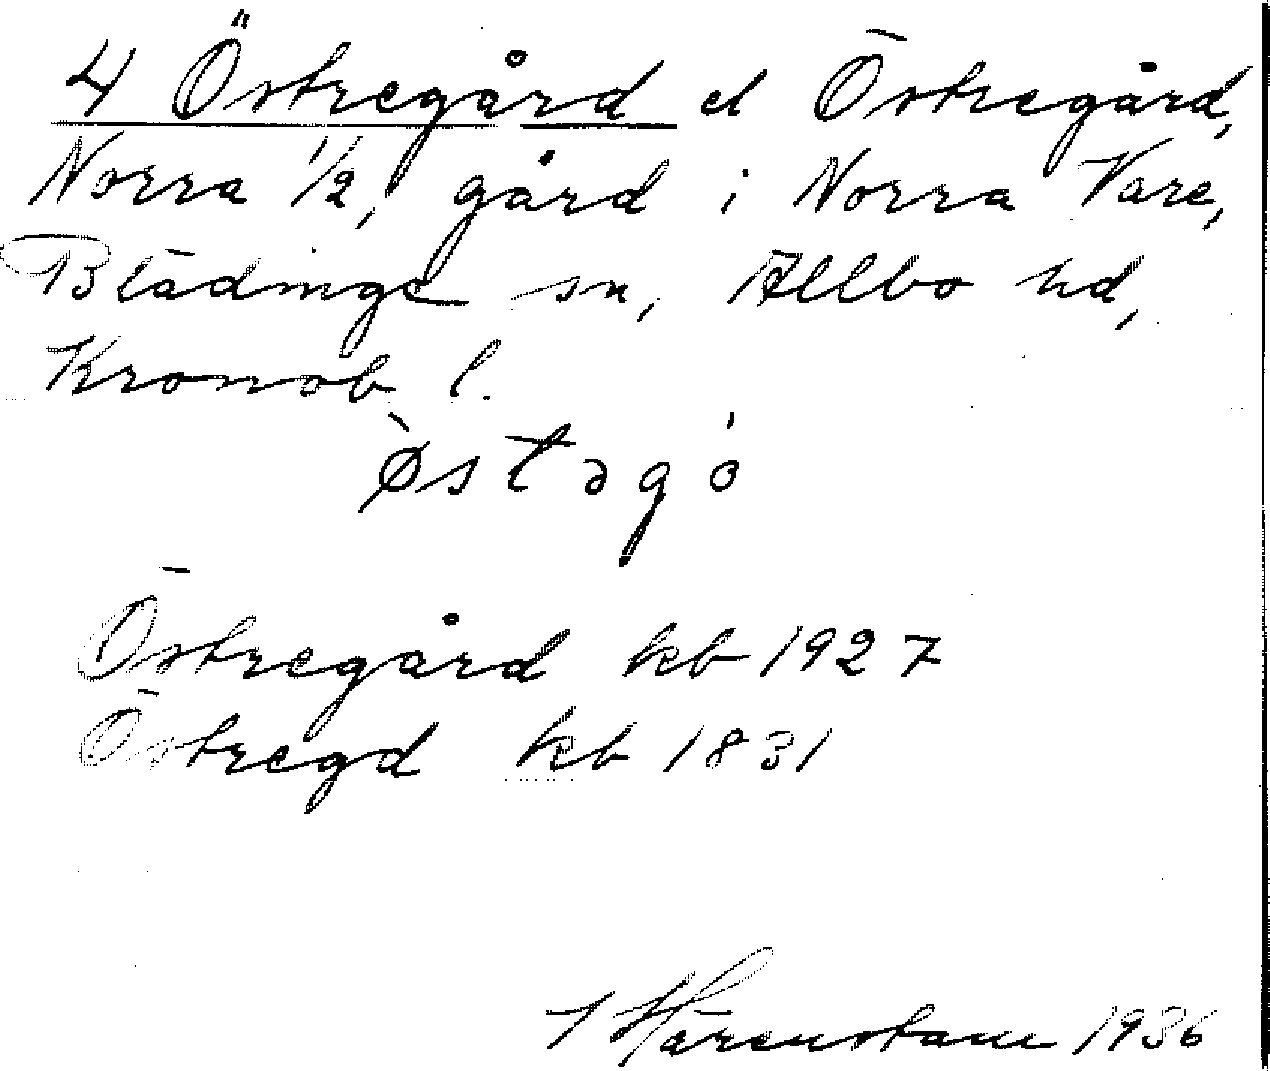 4 Östregård el Östregård,
Norra 1/2, gård i Norra Vare,
Blädinge sn, Allbo hd,
Kronob l.
ø̀stəgó
Östregård kb 1927
Östregd kb 1831
Härenstam 1936